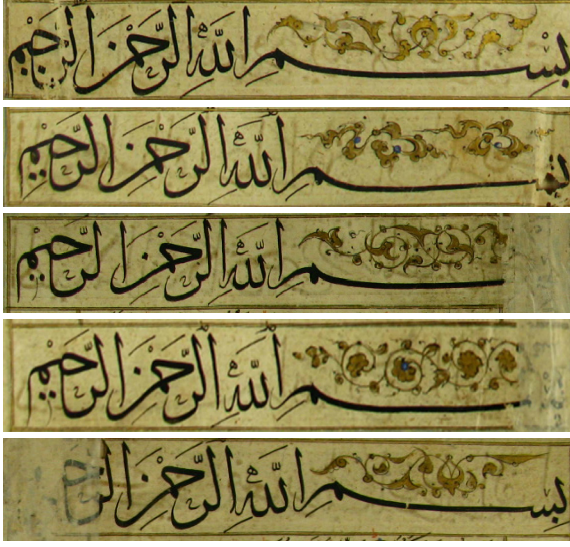 بسم الله الرحمن الرحيم
بسم الله الرحمن الرحيم
الله الرحمن الرحيم
الله الرحمن الرحيم
بسم الله الرحمن